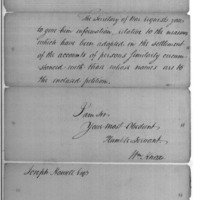 The Secretary of War requests you
to give him information, relative to the measures
which have been adopted in the settlement
of the accounts of persons similarly circum-
stanced with those whose names are to
the enclosed petition.
I am Sir
Your Most Obedient
Humble Servant
Wm. Knox
Joseph Howell Esqr